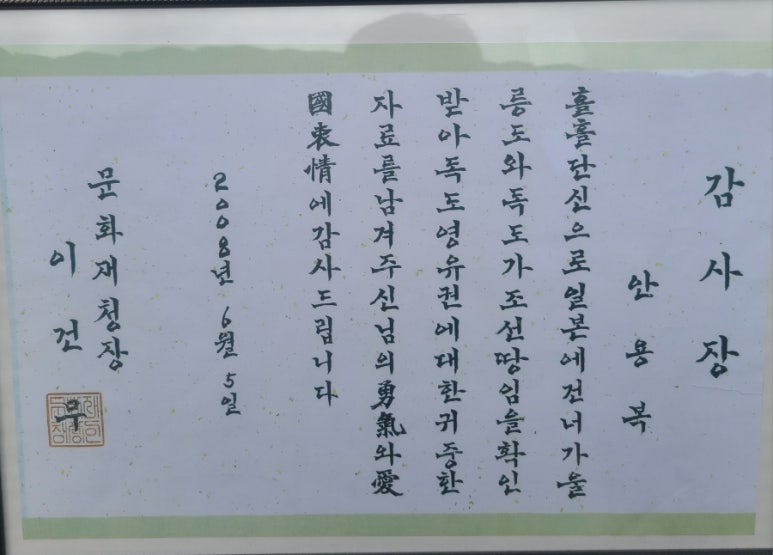 감사장
안용복
홀홀단신으로일본에건너가울
릉도와독도가조선땅임을확인
받아독도영유권에대한귀중한
자료를남겨주신님의勇氣와愛
國衷情에감사드립니다
2008년 6월 5일
문화재청장
이건무